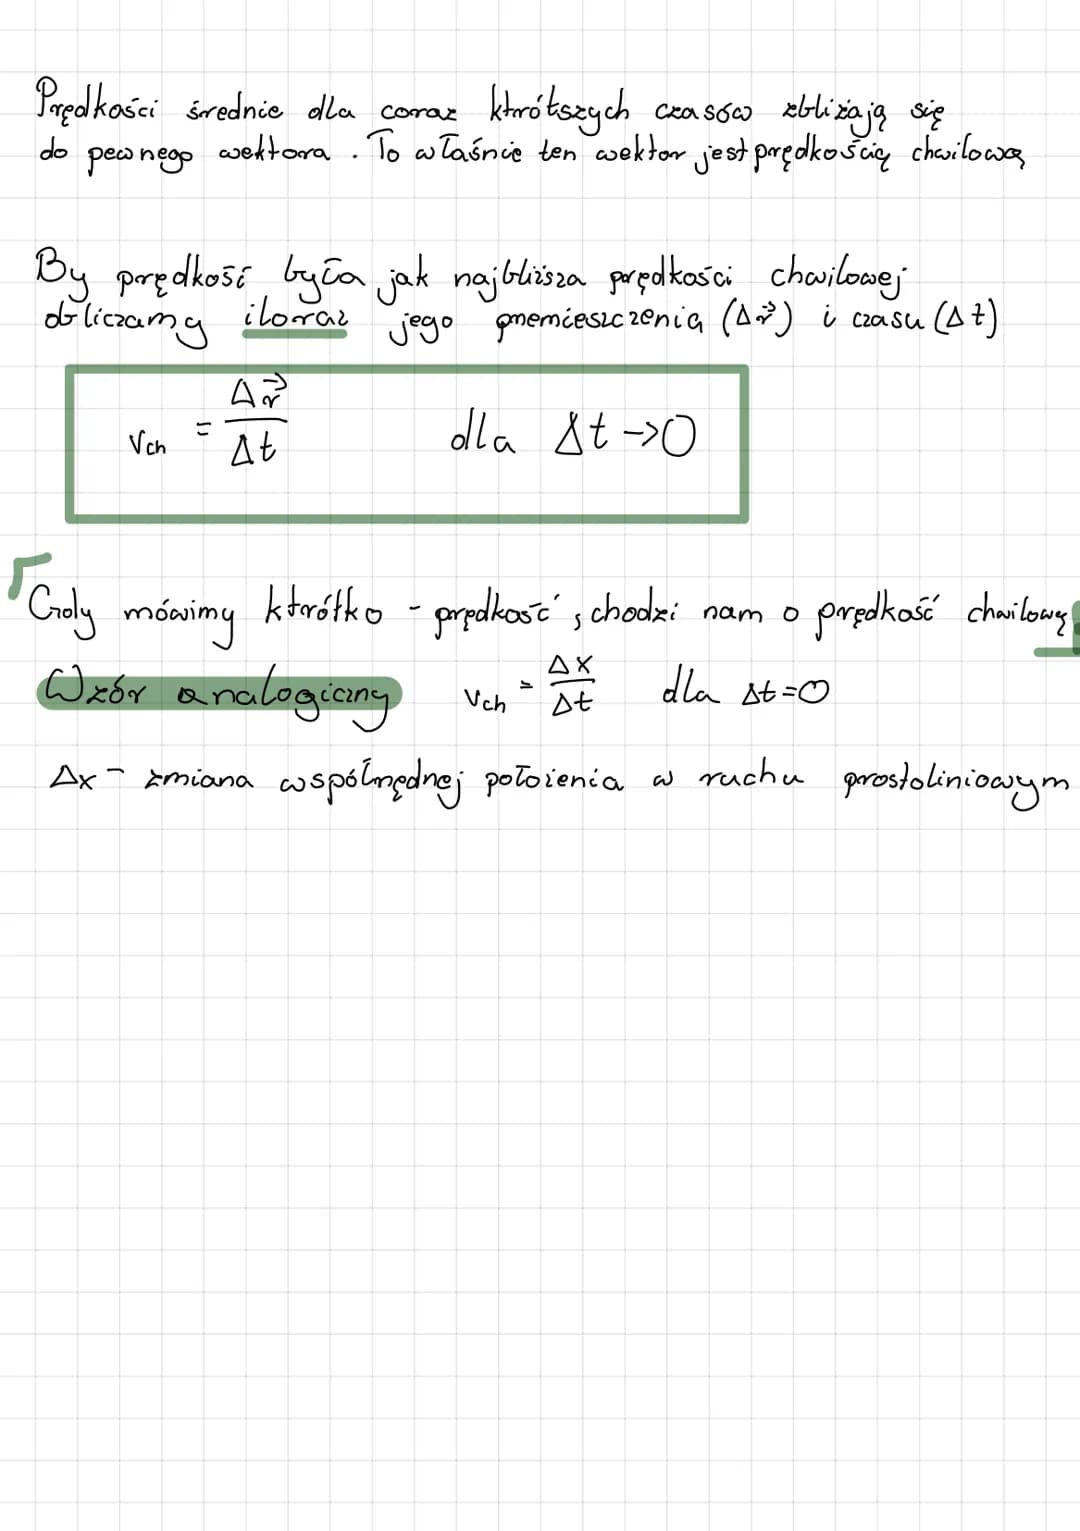 Prędkości średnie dla coraz krótszych czasów zbliżają się
do pewnego wektora. To właśnie ten wektor jest prędkością chwilową
By prędkość była jak najbliższa prędkości chwilowej
obliczamy iloraz jego przemieszczenia (Δr⃗) i czasu (Δt)
Vch = Δr⃗ / Δt dla Δt -> 0
Gdy mówimy krótko - prędkość, chodzi nam o prędkość chwilową
Wzór analogiczny Vch = Δx / Δt dla Δt = 0
Δx - zmiana współrzędnej położenia w ruchu prostoliniowym